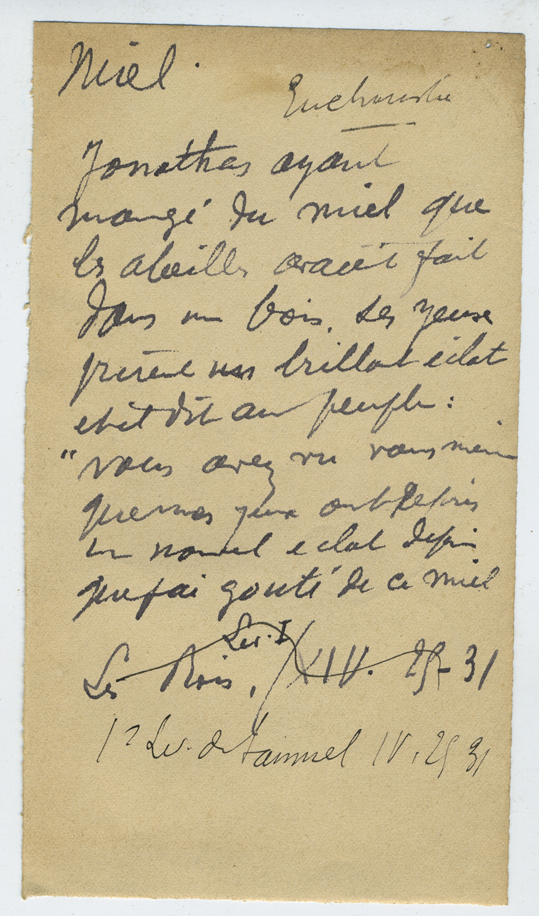 Miel.
Eucharistie
Jonathas ayant
mangé du miel que
les abeilles avaient fait
dans un bois, ses yeux
prirent un brillant éclat
et il dit au peuple :
"vous avez vu vous même
que mes yeux ont repris
un nouvel eclat depuis
que j'ai gouté de ce miel
Liv. I
Les Rois, XIV. 29-31
1º Liv. de Samuel IV. 29 31